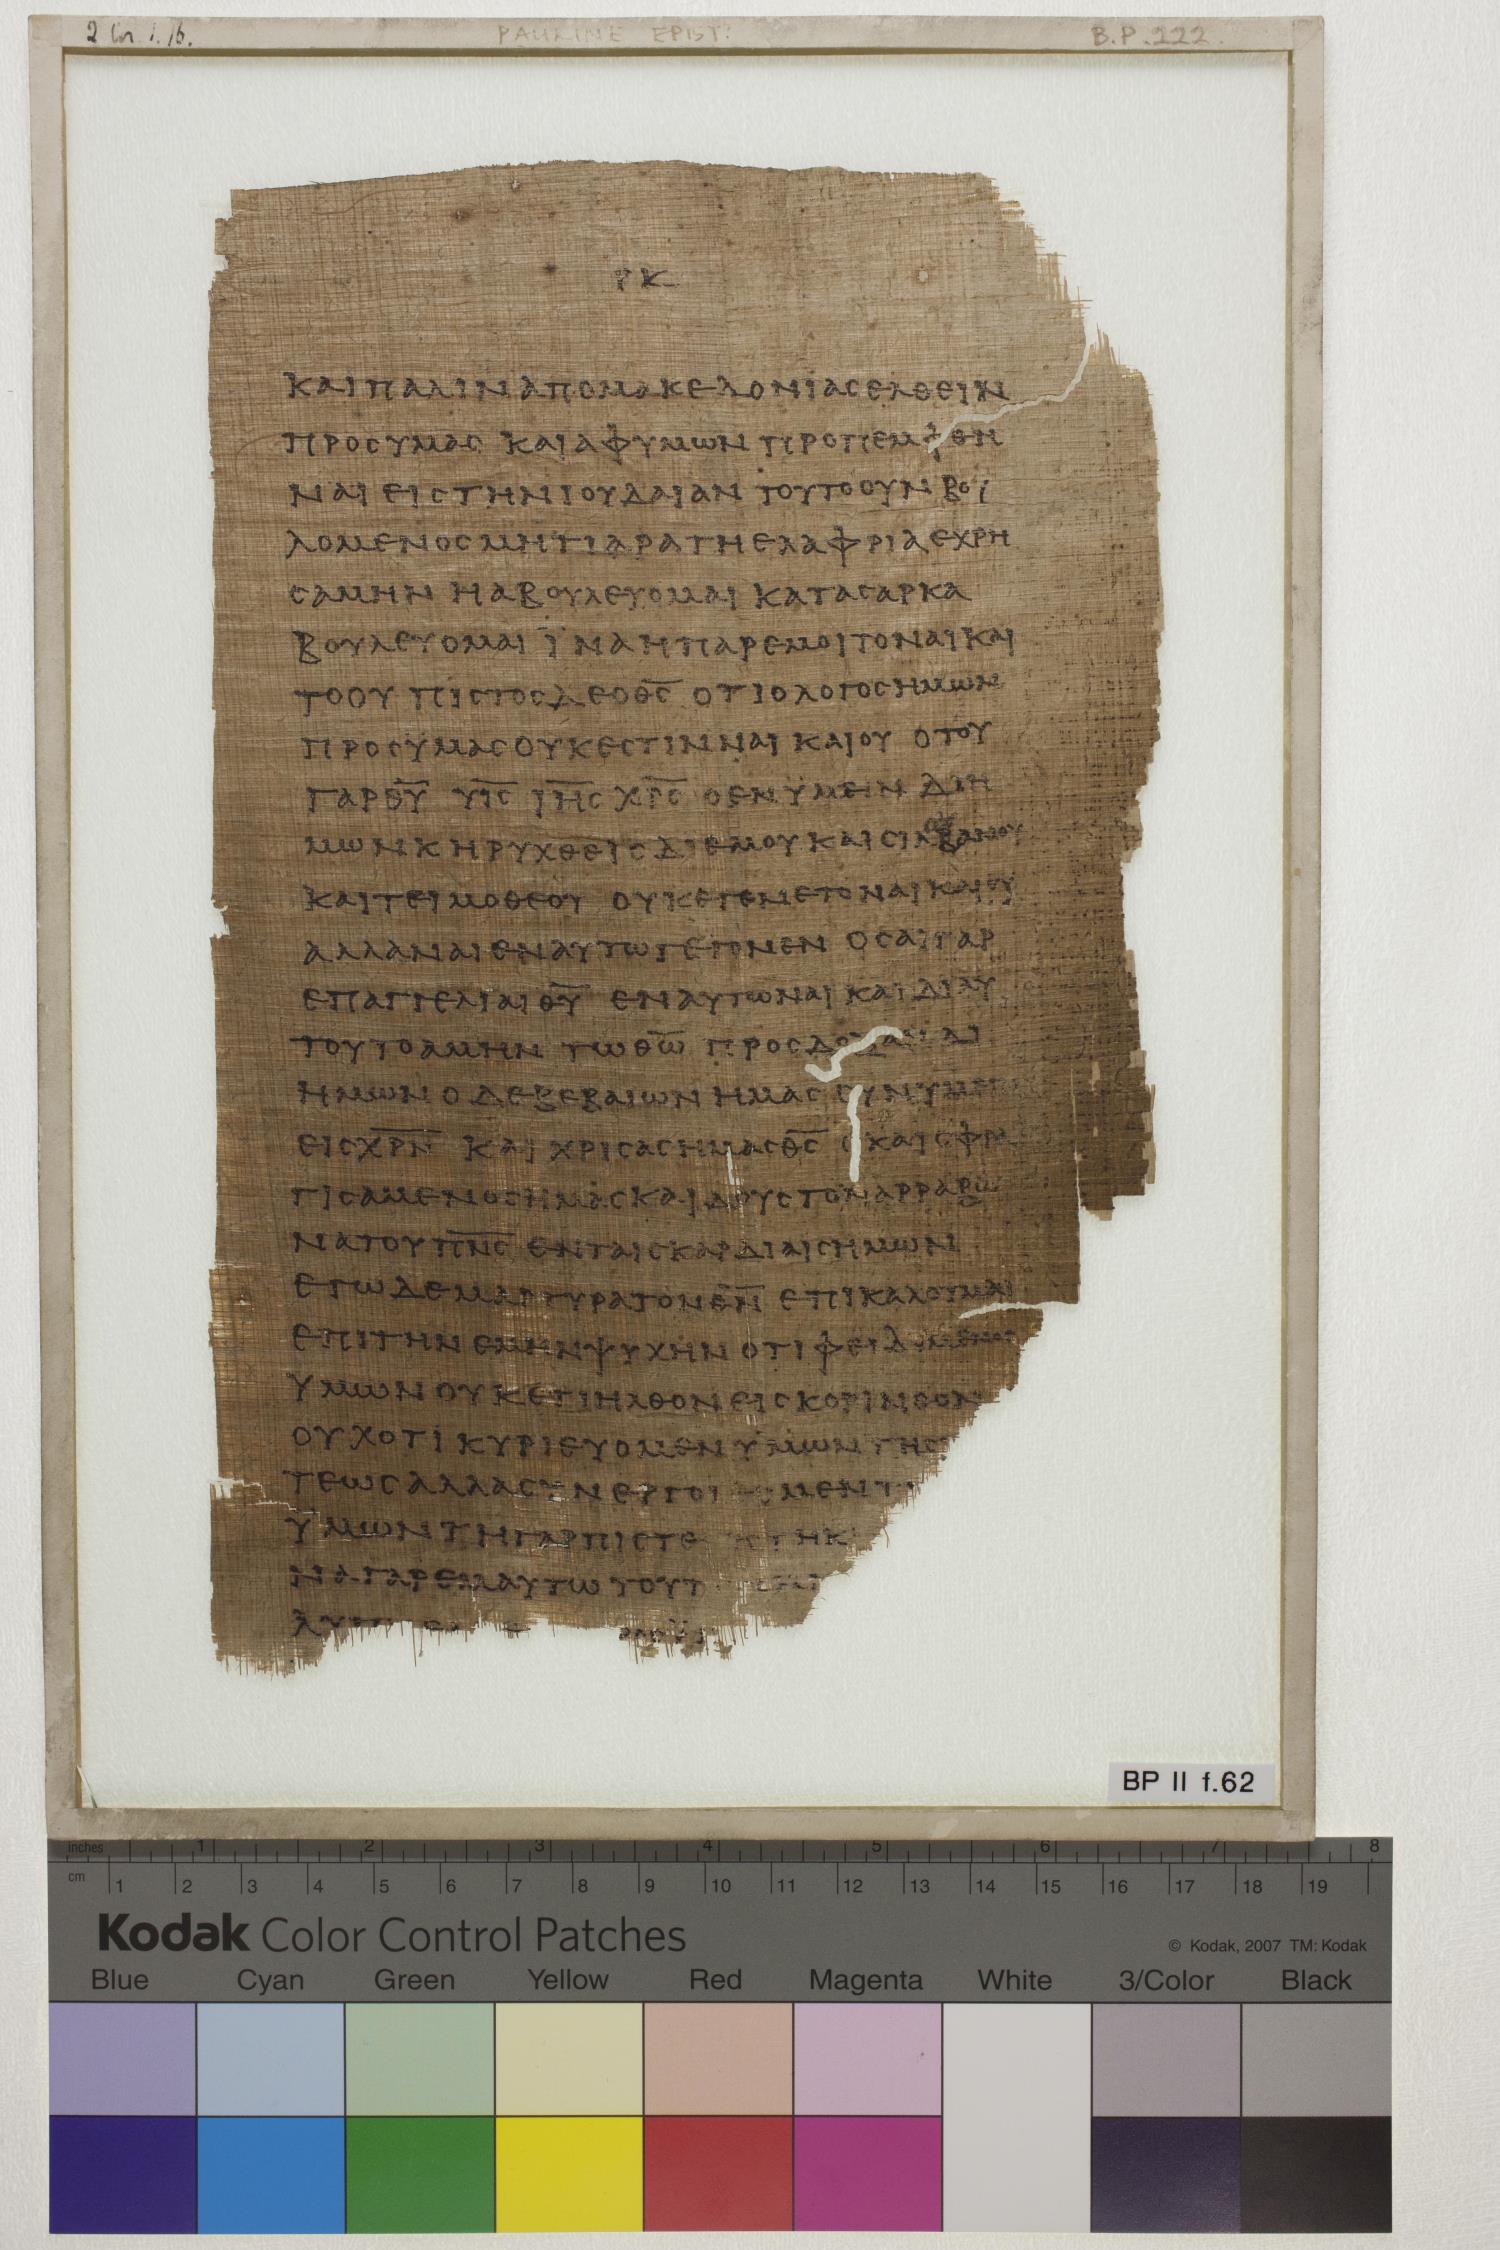 2 Cor. 1. 16. PAULINE EPIST: B.P. 222.
ΡΚ
ΚΑΙ ΠΑΛΙΝ ΑΠΟ ΜΑΚΕΔΟΝΙΑС ΕΛΘΕΙΝ
ΠΡΟС ΥΜΑС ΚΑΙ ΑΦ ΥΜΩΝ ΠΡΟΠΕΜΦΘΗ
ΝΑΙ ΕΙС ΤΗΝ ΙΟΥΔΑΙΑΝ ΤΟΥΤΟ ΟΥΝ ΒΟΥ
ΛΟΜΕΝΟС ΜΗΤΙ ΑΡΑ ΤΗ ΕΛΑΦΡΙΑ ΕΧΡΗ
СΑΜΗΝ Η Α ΒΟΥΛΕΥΟΜΑΙ ΚΑΤΑ СΑΡΚΑ
ΒΟΥΛΕΥΟΜΑΙ ΪΝΑ Η ΠΑΡ ΕΜΟΙ ΤΟ ΝΑΙ ΚΑΙ
ΤΟ ΟΥ ΠΙСΤΟС ΔΕ Ο Θ̅С̅ ΟΤΙ Ο ΛΟΓΟС ΗΜΩΝ
ΠΡΟС ΥΜΑС ΟΥΚ ΕСΤΙΝ ΝΑΙ ΚΑΙ ΟΥ Ο ΤΟΥ
ΓΑΡ Θ̅Υ̅ Υ̅Ι̅С̅ Ι̅Η̅С̅ Χ̅Ρ̅С̅ Ο ΕΝ ΥΜΕΙΝ ΔΙ Η
ΜΩΝ ΚΗΡΥΧΘΕΙС ΔΙ ΕΜΟΥ ΚΑΙ СΙΛΒΑΝΟΥ
ΚΑΙ ΤΕΙΜΟΘΕΟΥ ΟΥΚ ΕΓΕΝΕΤΟ ΝΑΙ ΚΑΙ ΟΥ
ΑΛΛΑ ΝΑΙ ΕΝ ΑΥΤΩ ΓΕΓΟΝΕΝ ΟСΑΙ ΓΑΡ
ΕΠΑΓΓΕΛΙΑΙ Θ̅Υ̅ ΕΝ ΑΥΤΩ ΝΑΙ ΚΑΙ ΔΙ ΑΥ
ΤΟΥ ΤΟ ΑΜΗΝ ΤΩ Θ̅Ω̅ ΠΡΟС ΔΟΞΑΝ ΔΙ
ΗΜΩΝ Ο ΔΕ ΒΕΒΑΙΩΝ ΗΜΑС СΥΝ ΥΜΕΙ
ΕΙС Χ̅Ρ̅Ν̅ ΚΑΙ ΧΡΙСΑС ΗΜΑС Θ̅С̅ Ο ΚΑΙ СΦΡΑ
ΓΙСΑΜΕΝΟС ΗΜΑС ΚΑΙ ΔΟΥС ΤΟΝ ΑΡΡΑΒΩ
ΝΑ ΤΟΥ Π̅Ν̅С̅ ΕΝ ΤΑΙС ΚΑΡΔΙΑΙС ΗΜΩΝ
ΕΓΩ ΔΕ ΜΑΡΤΥΡΑ ΤΟΝ Θ̅Ν̅ ΕΠΙΚΑΛΟΥΜΑΙ
ΕΠΙ ΤΗΝ ΕΜΗΝ ΨΥΧΗΝ ΟΤΙ ΦΕΙΔΟΜΕΝΟС
ΥΜΩΝ ΟΥΚΕΤΙ ΗΛΘΟΝ ΕΙС ΚΟΡΙΝΘΟΝ
ΟΥΧ ΟΤΙ ΚΥΡΙΕΥΟΜΕΝ ΥΜΩΝ ΤΗС
ΤΕΩС ΑΛΛΑ СΥΝΕΡΓΟΙ ΜΕΝ Τ
ΥΜΩΝ ΤΗ ΓΑΡ ΠΙСΤΕ ΤΗΚ
ΝΑ ΓΑΡ ΕΜΑΥΤΩ ΤΟΥΤ
ΛΥΠ
BP II f.62
inches 1 2 3 4 5 6 7 8
cm 1 2 3 4 5 6 7 8 9 10 11 12 13 14 15 16 17 18 19
Kodak Color Control Patches
© Kodak, 2007 TM: Kodak
Blue Cyan Green Yellow Red Magenta White 3/Color Black